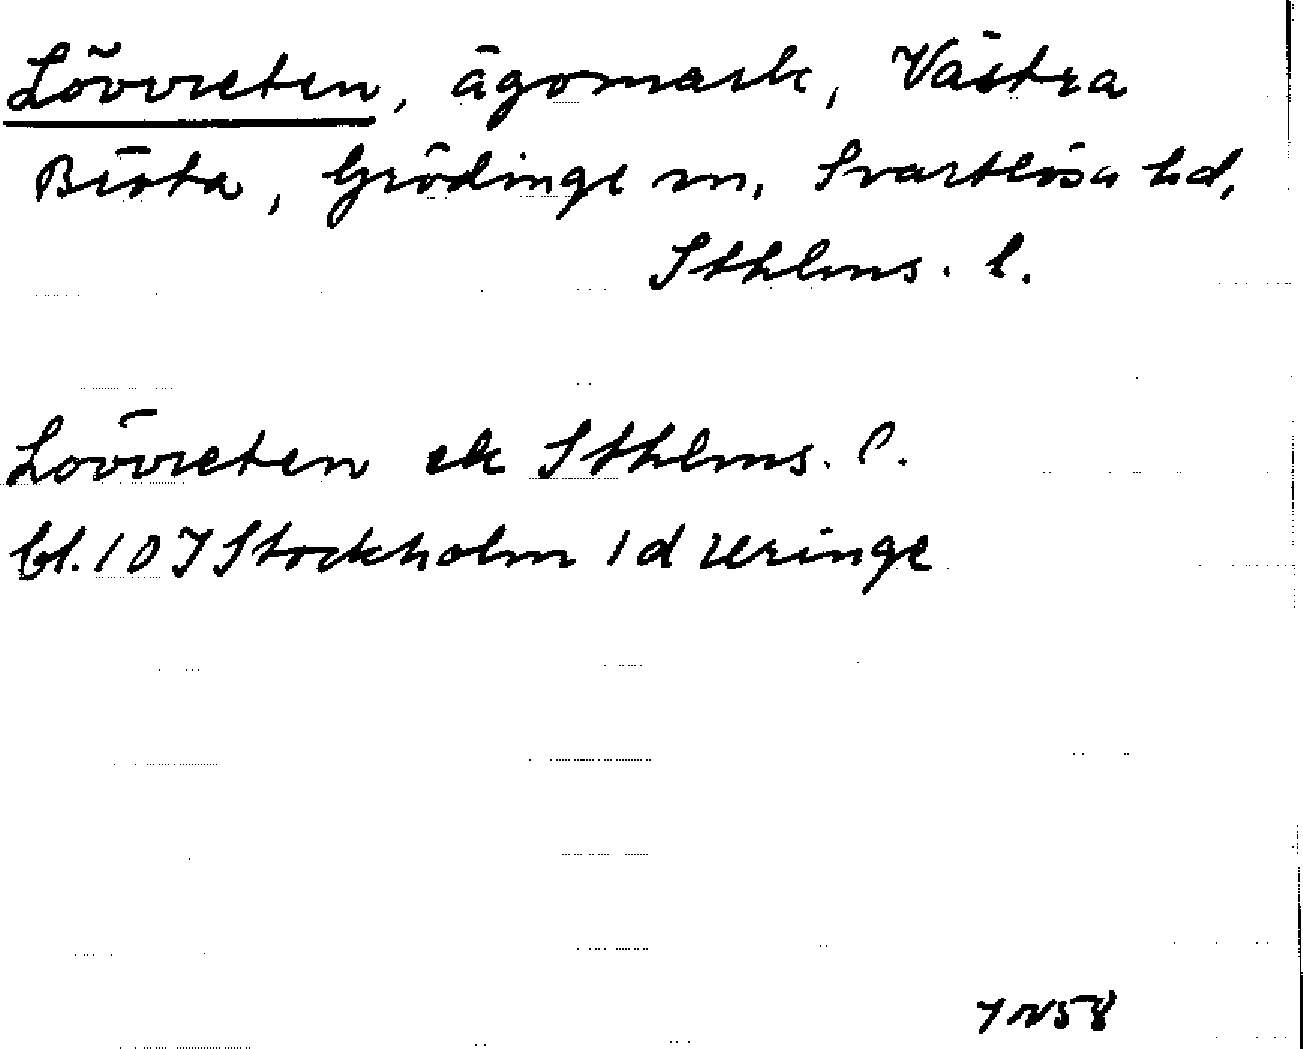 Lövvreten, ägomark, Västra
Bröta, Grödinge sn, Svartlösa hd,
Sthlms. l.
Lövvreten ek Sthlms. l.
bl. 10I Stockholm 1d Uringe